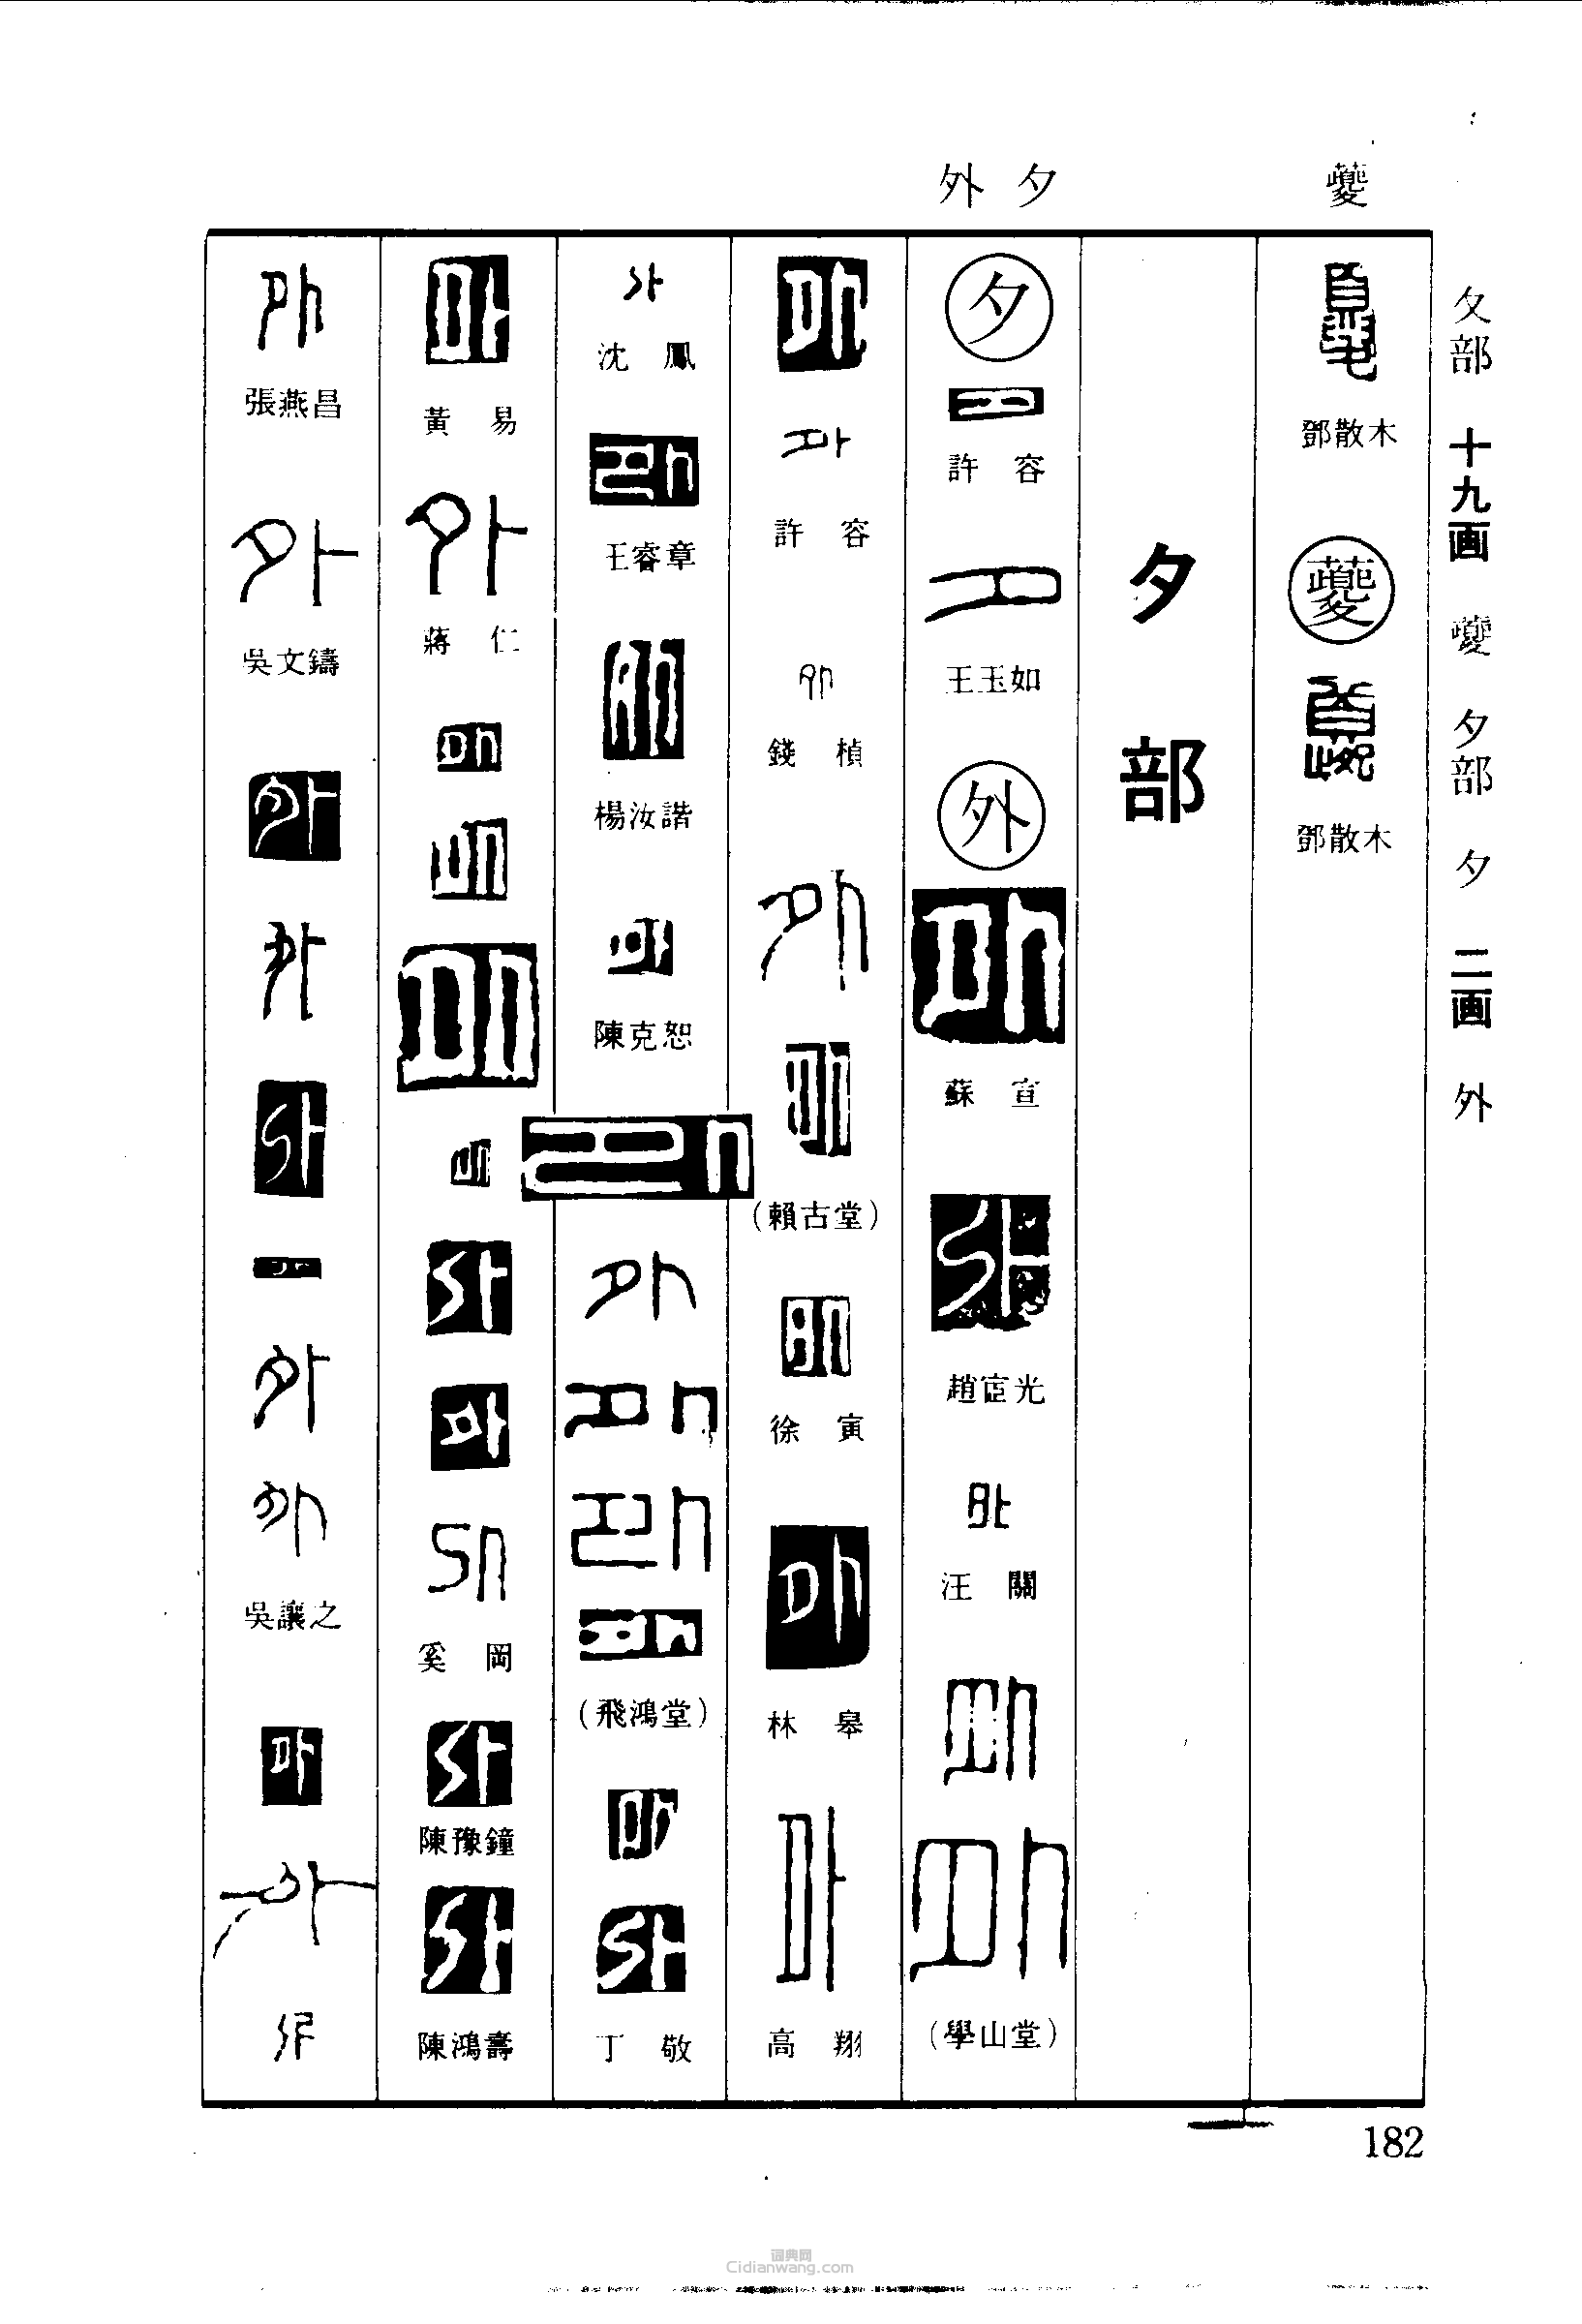 外 夕
夊部 十九画 夕部 夕 二画 外
鄧散木
鄧散木
夕部
夕
許容
王玉如
外
蘇宣
趙宧光
汪關
(學山堂)
許容
錢楨
(賴古堂)
徐寅
林皋
高翔
沈鳳
王睿章
楊汝諧
陳克恕
(飛鴻堂)
丁敬
黃易
蔣仁
奚岡
陳豫鐘
陳鴻壽
張燕昌
吳文鑄
吳讓之
182
词典网
Cidianwang.com